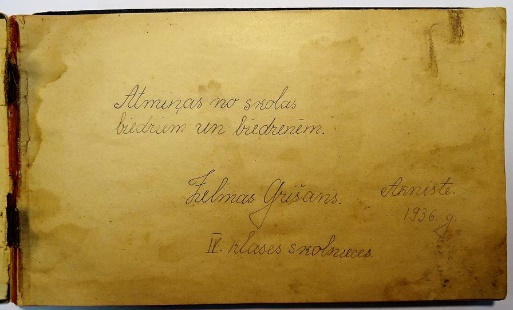 Atmiņas no skolas
biedriem un biedrenēm.
Zelmas Grišans. Akniste.
1936. g.
IV. klases skolnieces.